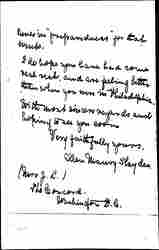 in "preparedness" for that
work.
I do hope you have had some
real rest, and are feeling better
than when you were in Philadelphia.
With most sincere regards and
hoping to see you soon
Very faithfully yours,
Ellen Maury Slayden
(Mrs J. L.)
The Concord.
Washington D.C.